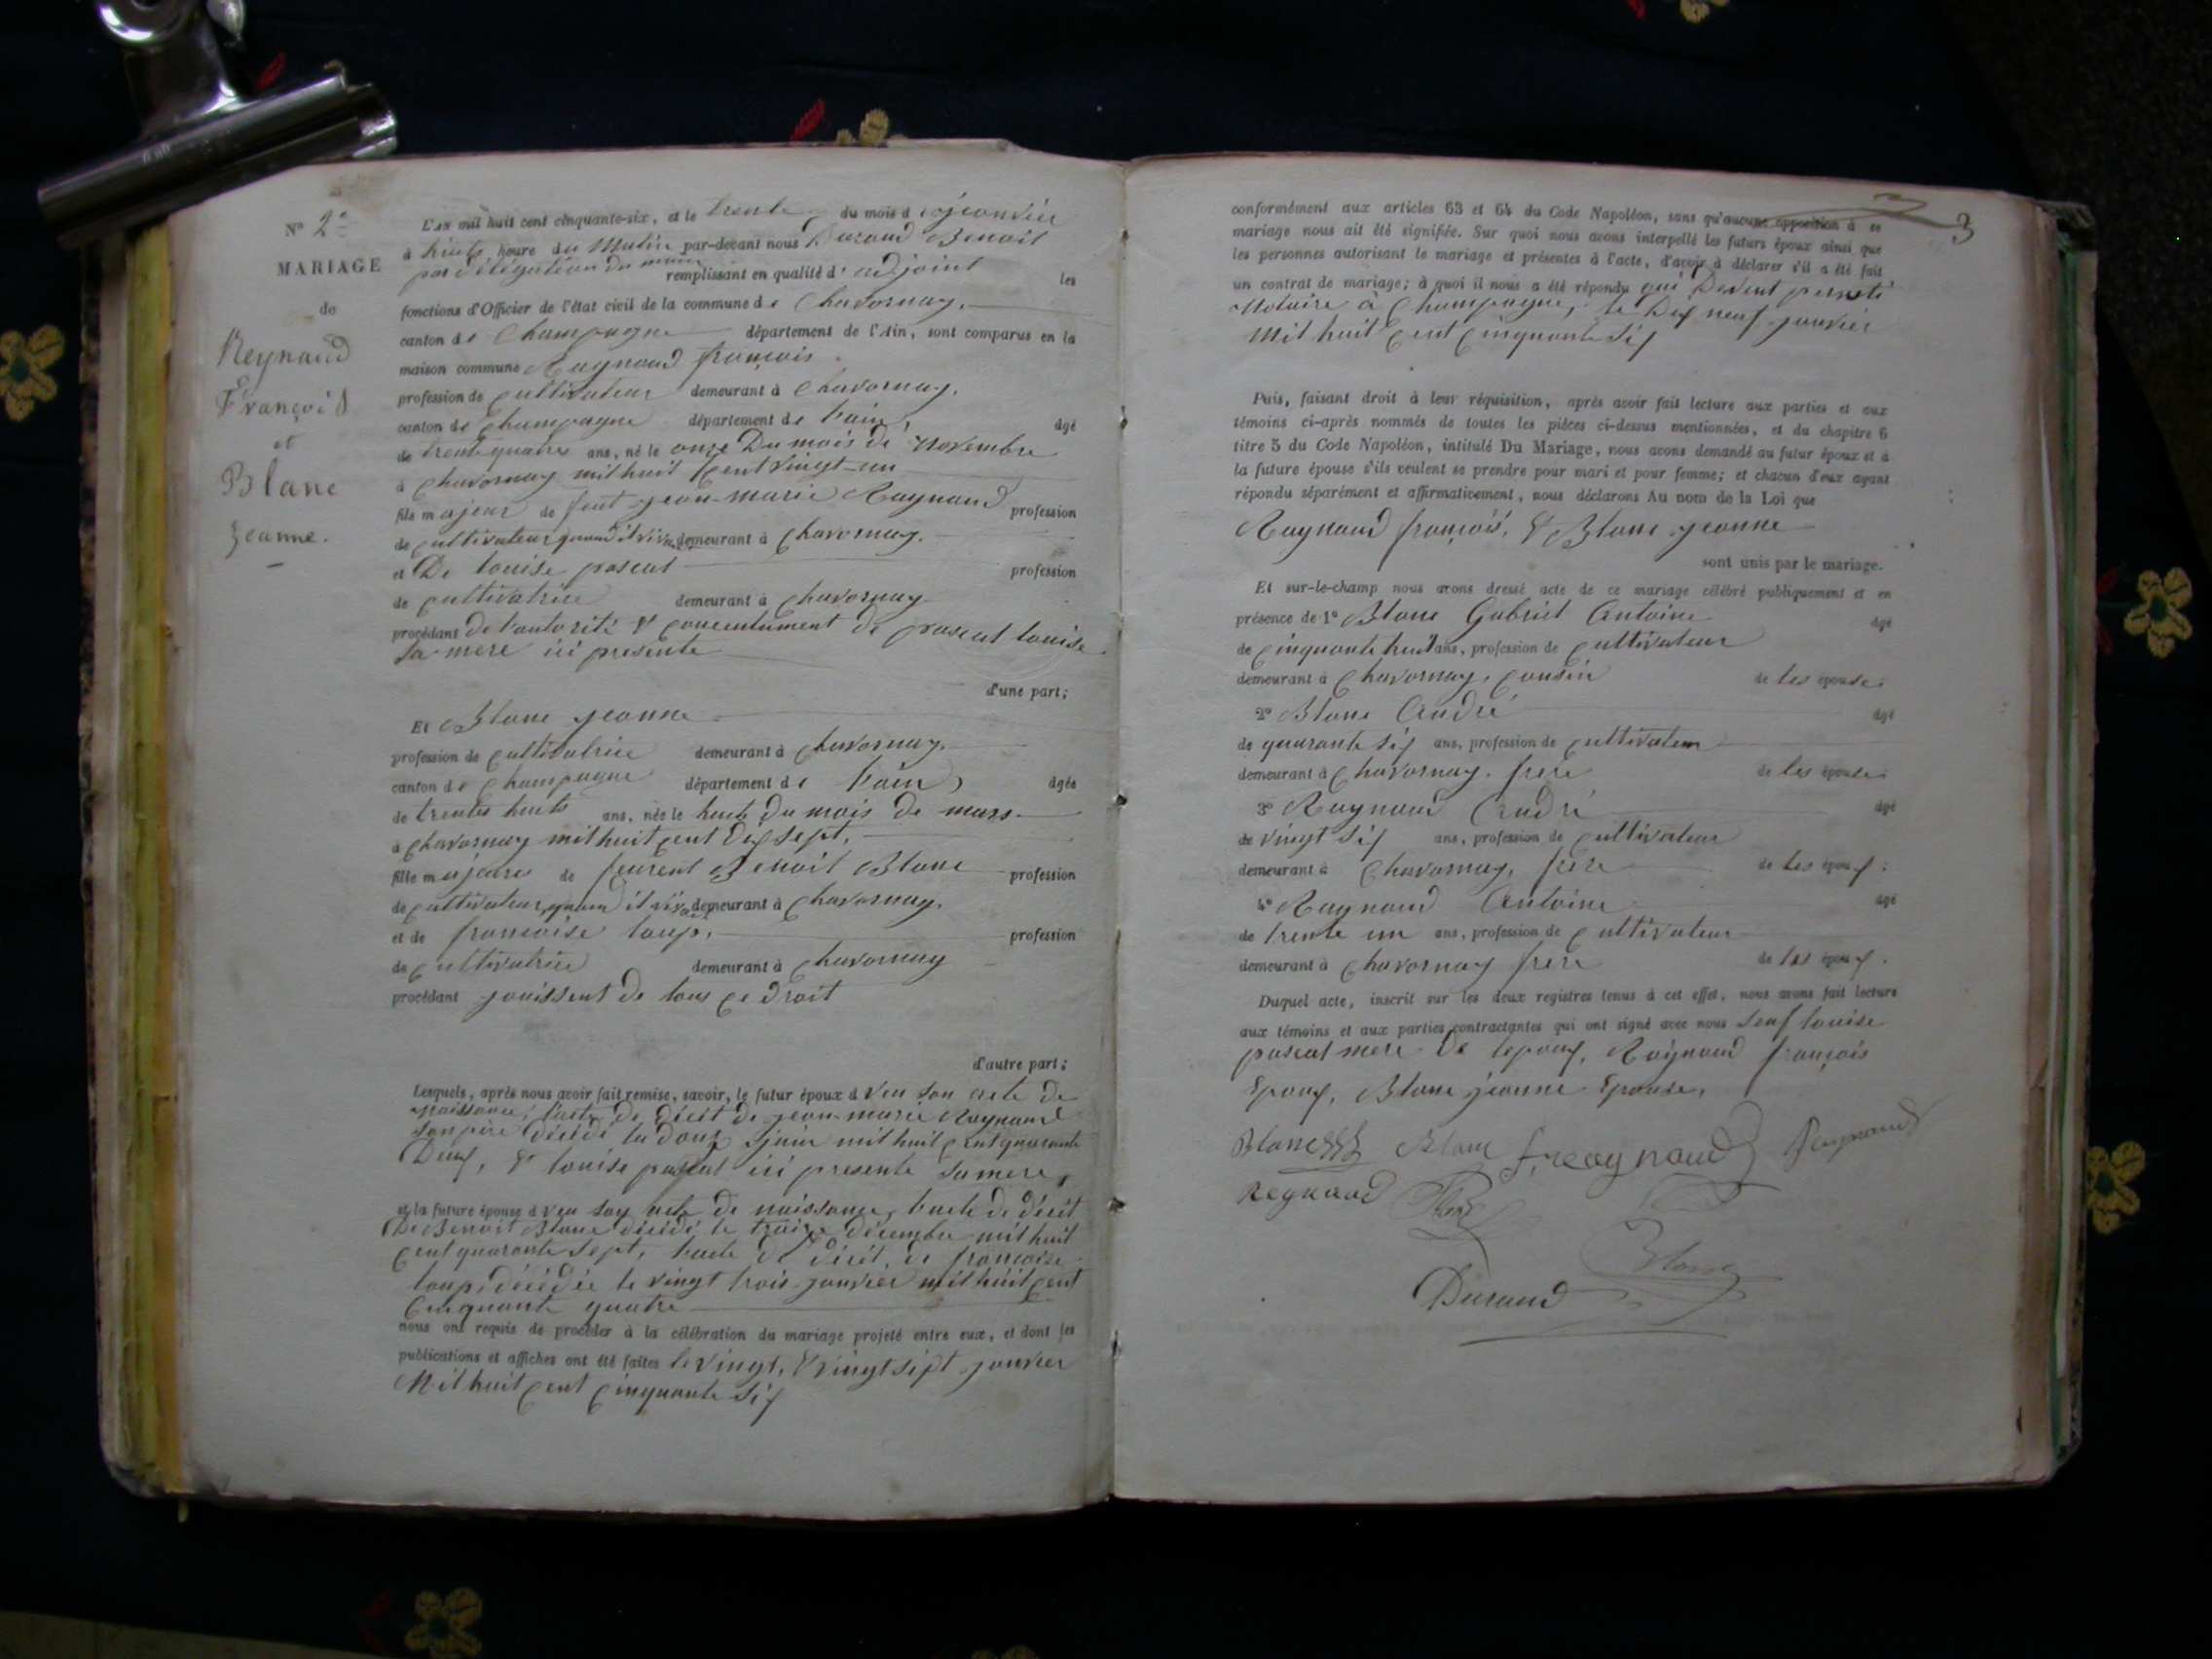 N° 2e
MARIAGE
de
Reynaud
François
et
Blanc
Jeanne.
L'an mil huit cent cinquante-six, et le trente du mois d janvier
à huite heure du matin par-devant nous Durand Benoit
par délégation du maire remplissant en qualité d' adjoint les
fonctions d'Officier de l'état civil de la commune de Chavornay,
canton de Champagne département de l'Ain, sont comparus en la
maison commune Raynaud françois
profession de cultivateur demeurant à Chavornay,
canton de Champagne département de l'ain, âgé
de trente quatre ans, né le onze Du mois de Novembre
à Chavornay mil huit Cent vingt-un
fils majeur de feut jean-marie Raynaud profession
de cultivateur quand il vivait demeurant à Chavornay.
et De louise pascal profession
de cultivatrice demeurant à Chavornay
procédant de l'autorité & consentement de pascal louise
sa mere ici presente
d'une part;
Et Blanc jeanne
profession de cultivatrice demeurant à Chavornay,
canton de Champagne département de l'ain, âgée
de trente huit ans, née le huite du mois de mars
à Chavornay mil huit cent dix sept,
fille majeure de Benoit Blanc profession
de cultivateur, quand il vivait demeurant à Chavornay.
et de francoise loup, profession
de cultivatrice demeurant à Chavornay
procédant jouissent de tous ce droit
d'autre part;
Lesquels, après nous avoir fait remise, savoir, le futur époux d veu son acte de
naissance, l'acte de décèt de jean-marie Raynaud
son père décédé le douze juin mil huit Cent quarante
Deux, & louise pascal ici presente sa mere,
et la future épouse d veu son acte de naissance, l'acte de décèt
De Benoit Blanc décédé le treize décembre mil huit
cent quarante sept, l'acte de décèt, de francoise
loup, décédée le vingt trois janvier mil huit cent
Cinquante quatre
nous ont requis de procéder à la célébration du mariage projeté entre eux, et dont les
publications et affiches ont été faites le vingt, & vingt sept janvier
Mil huit cent cinquante six
3
conformément aux articles 63 et 64 du Code Napoléon, sans qu'aucune opposition à ce
mariage nous ait été signifiée. Sur quoi nous avons interpellé les futurs époux ainsi que
les personnes autorisant le mariage et présentes à l'acte, d'avoir à déclarer s'il a été fait
un contrat de mariage; à quoi il nous a été répondu oui Devent
Notaire à Champagne, le Dix neuf janvier
Mil huit Cent Cinquante six
Puis, faisant droit à leur réquisition, après avoir fait lecture aux parties et aux
témoins ci-après nommés de toutes les pièces ci-dessus mentionnées, et du chapitre 6
titre 5 du Code Napoléon, intitulé Du Mariage, nous avons demandé au futur époux et à
la future épouse s'ils veulent se prendre pour mari et pour femme; et chacun d'eux ayant
répondu séparément et affirmativement, nous déclarons Au nom de la Loi que
Raynaud françois, & Blanc jeanne
sont unis par le mariage.
Et sur-le-champ nous avons dressé acte de ce mariage célébré publiquement et en
présence de 1° Blanc Gabriel Antoine âgé
de cinquante huit ans, profession de cultivateur
demeurant à Chavornay, cousin de les épouse.
2° Blanc André âgé
de quarante six ans, profession de cultivateur
demeurant à Chavornay. frere de les épouse.
3° Raynaud André âgé
de vingt six ans, profession de cultivateur
demeurant à Chavornay, frere de les époux.
4° Raynaud Antoine âgé
de trente un ans, profession de cultivateur
demeurant à Chavornay frere de les époux.
Duquel acte, inscrit sur les deux registres tenus à cet effet, nous avons fait lecture
aux témoins et aux parties contractantes qui ont signé avec nous sauf louise
pascal mere de lepoux, Raynaud françois
Epoux, Blanc jeanne Epouse,
Blanc Blanc f. reaynaud Reynaud
Reynaud
Blanc
Durand